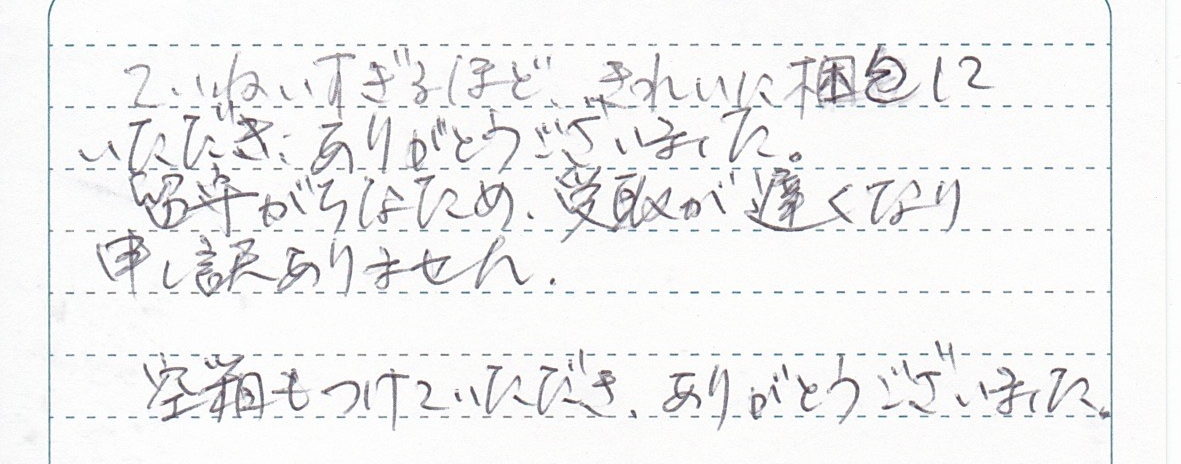 ていねいすぎるほど、きれいに梱包して
いただき、ありがとうございました。
留守がちなため、受取が遅くなり
申し訳ありません。
空箱もつけていただき、ありがとうございました。